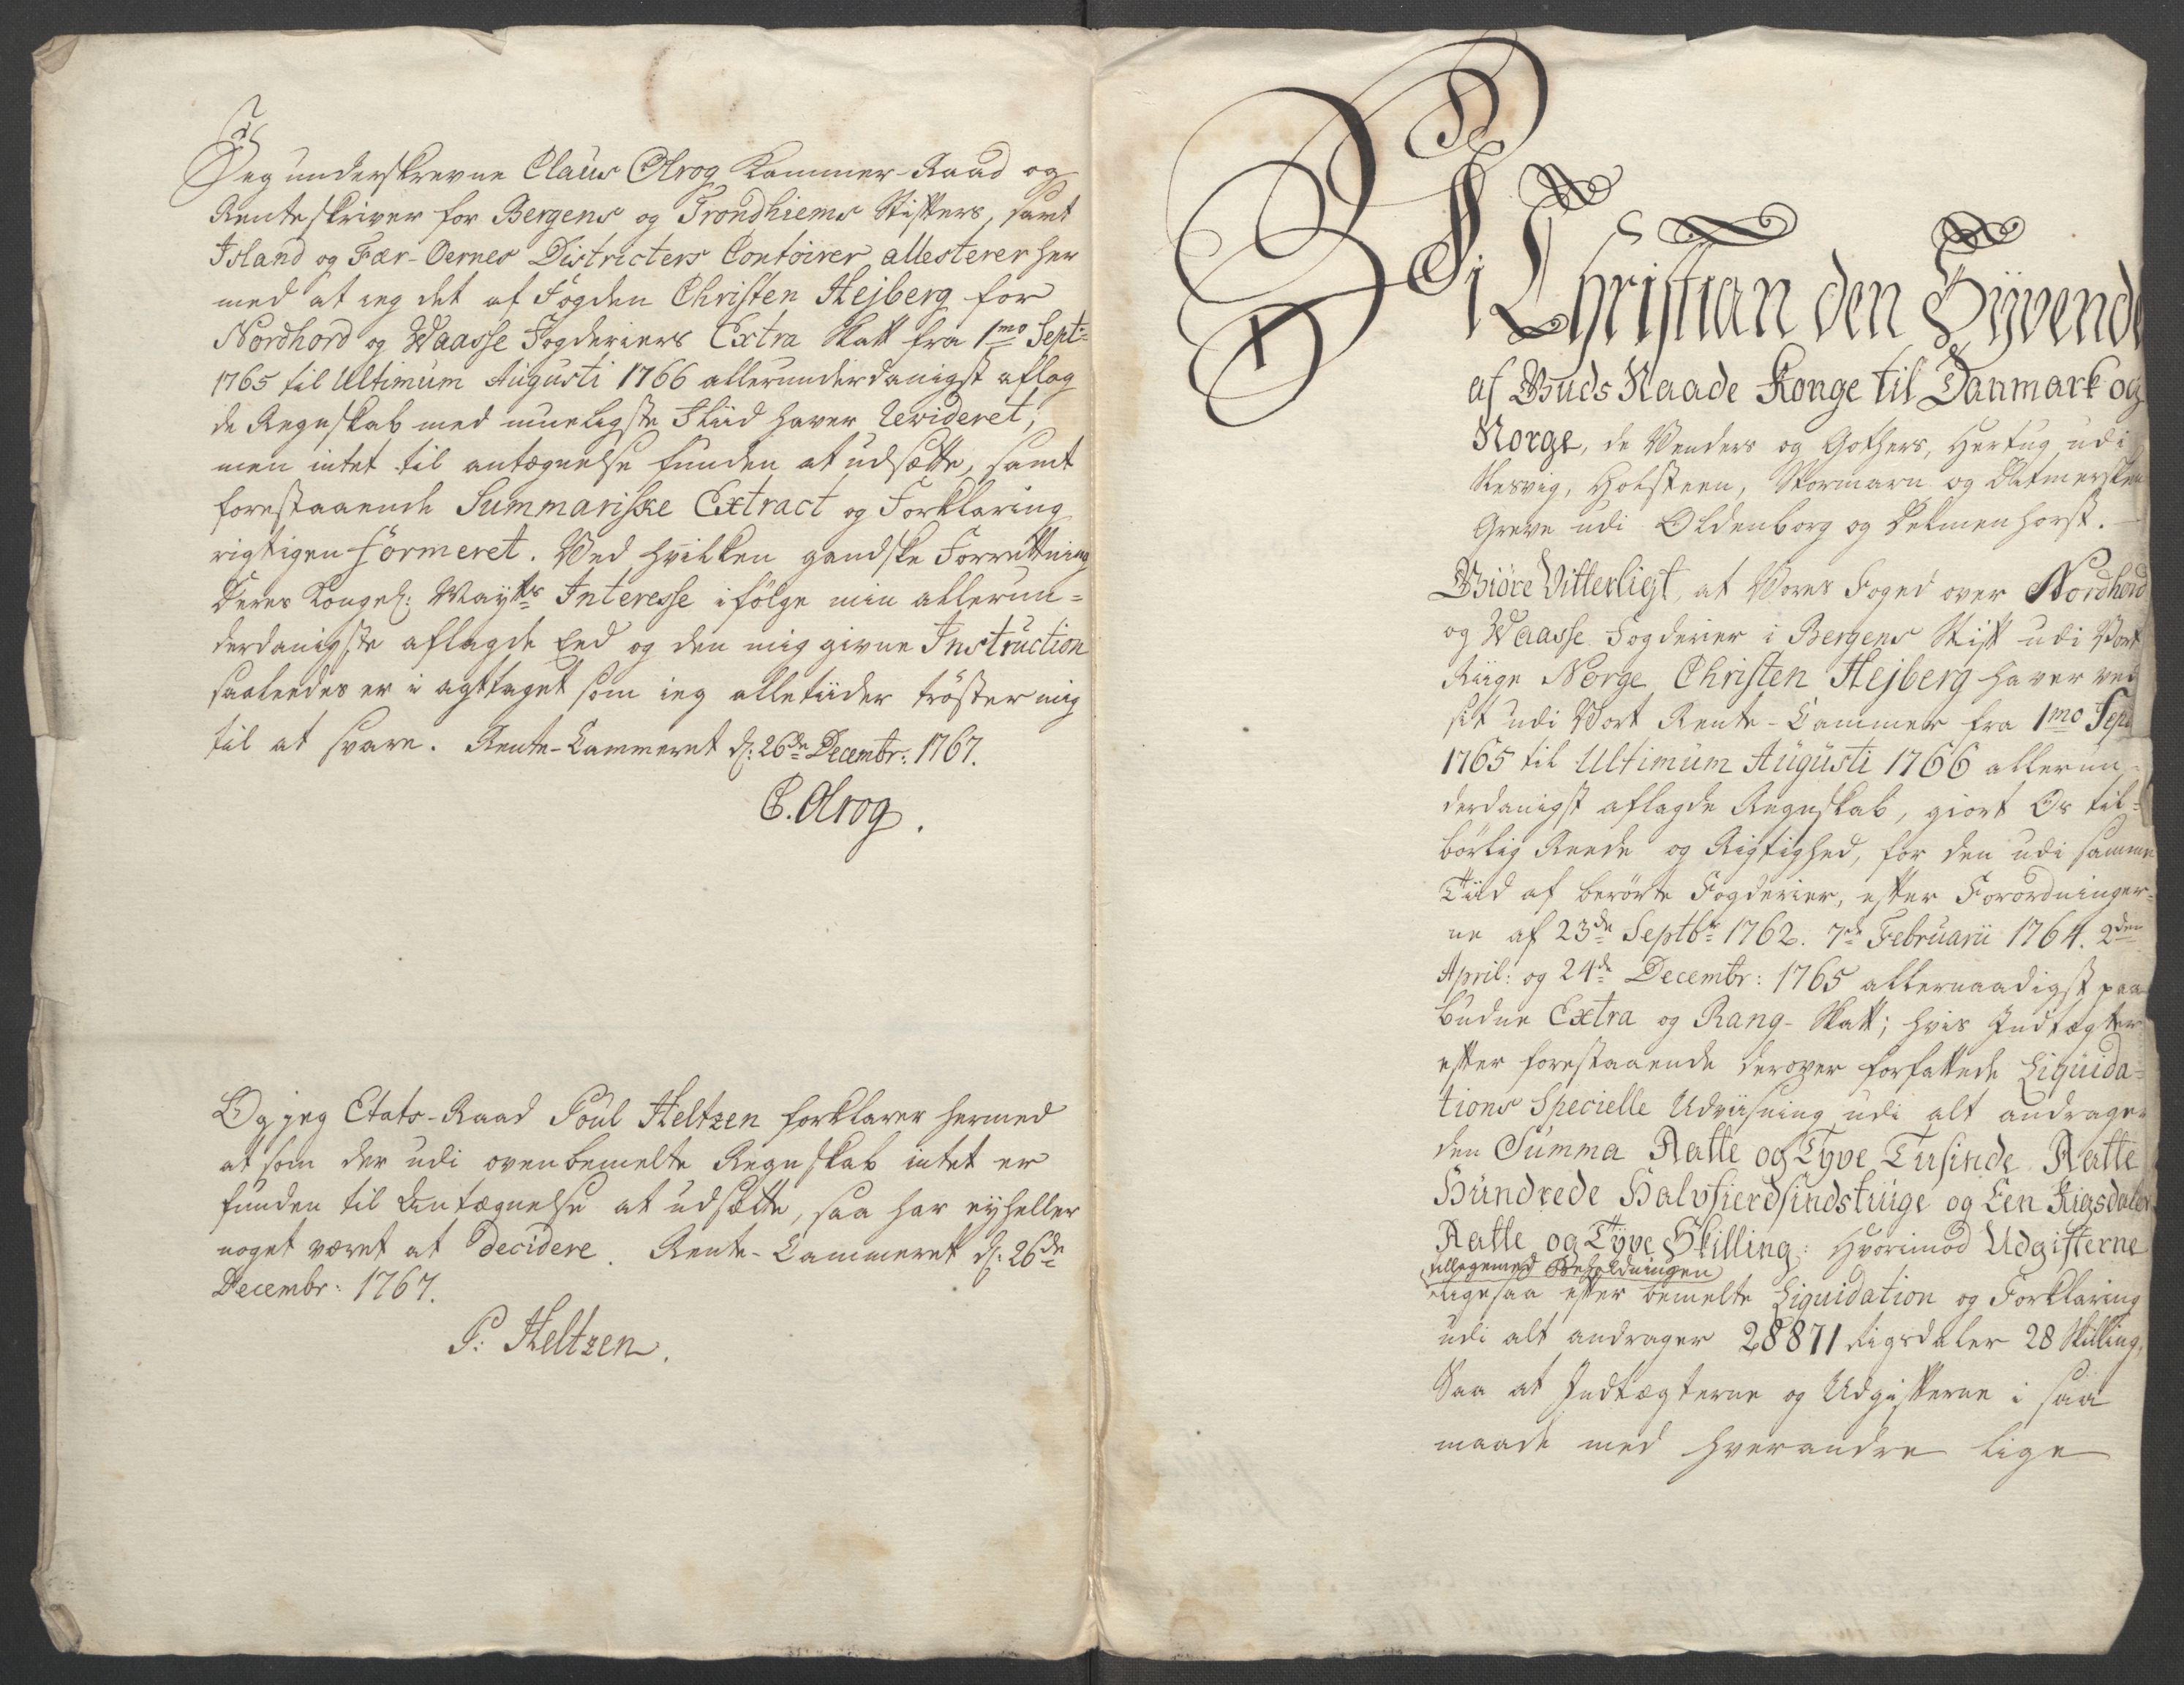 Jeg underskrevne Claus Olrog Kammer-Raad og
Renteskriver for Bergens og Trondhiems Stifters, samt
Island og Fær-Oernes Districters Contoirer attesterer her
med at ieg det af Fogden Christen Hejberg for
Nordhord og Waasse Fogderiers Extra Skatt fra 1mo Sept:
1765 til Ultimum Augusti 1766 allerunderdanigst aflag
de Regnskab med mueligste Fliid haver Revideret,
men intet til antægnelse funden at udsætte, samt
forestaaende Summariske Extract og Forklaring
rigtigen formeret. Ved hvilken gandske Forretning
Deres Kongel: Mayts Interesse ifølge min allerun=
derdanigste aflagde Eed og den mig givne Instruction
saaledes er i agttaget som ieg alletiider trøster mig
til at svare. Rente-Cammeret d: 26de Decembr: 1767.
C. Olrog.
Og jeg Etats-Raad Poul Heltzen forklarer hermed
at som der udi ovenbemelte Regnskab intet er
funden til Antægnelse at udsætte, saa har ey heller
noget været at decidere. Rente-Cammeret d: 26de
Decembr: 1767.
P: Heltzen.
Vi Christian den Syvende
af Guds Naade Konge til Danmark og
Norge, de Venders og Gothers, Hertug udi
Slesvig, Holsteen, Stormarn og Ditmersken
Greve udi Oldenborg og Delmenhorst.
Giöre Vitterligt, at Vores Foged over Nordhord
og Waasse Fogderier i Bergens Stift udi Vort
Riige Norge, Christen Hejberg haver ved
sit udi Vort Rente-Cammer fra 1mo Sept
1765 til Ultimum Augusti 1766 allerun=
derdanigst aflagde Regnskab, giort Os til=
børlig Reede og Rigtighed, for den udi samme
Tiid af berørte Fogderier, efter Forordninger=
ne af 23de Septbr 1762. 7de Februarii 1764. 2den
April: og 24de Decembr: 1765 allernaadigst paa
budne Extra og Rang-Skatt; hvis Indtægter
efter forestaaende derover forfattede Liquida=
tions Specielle Udviisning udi alt andrager
den Summa Aatte og Tyve Tusinde Aatte
Hundrede Halvfierdsindstiuge og Een Rigsdaler
Aatte og Tyve Skilling: Hvorimod Udgifterne
tilligemed Beholdningen
ligesaa efter bemelte Liquidation og Forklaring
udi alt andrager 28871 Rigsdaler 28 Skilling,
Saa at Indtægterne og Udgifterne i saa
maade med hverandre lige